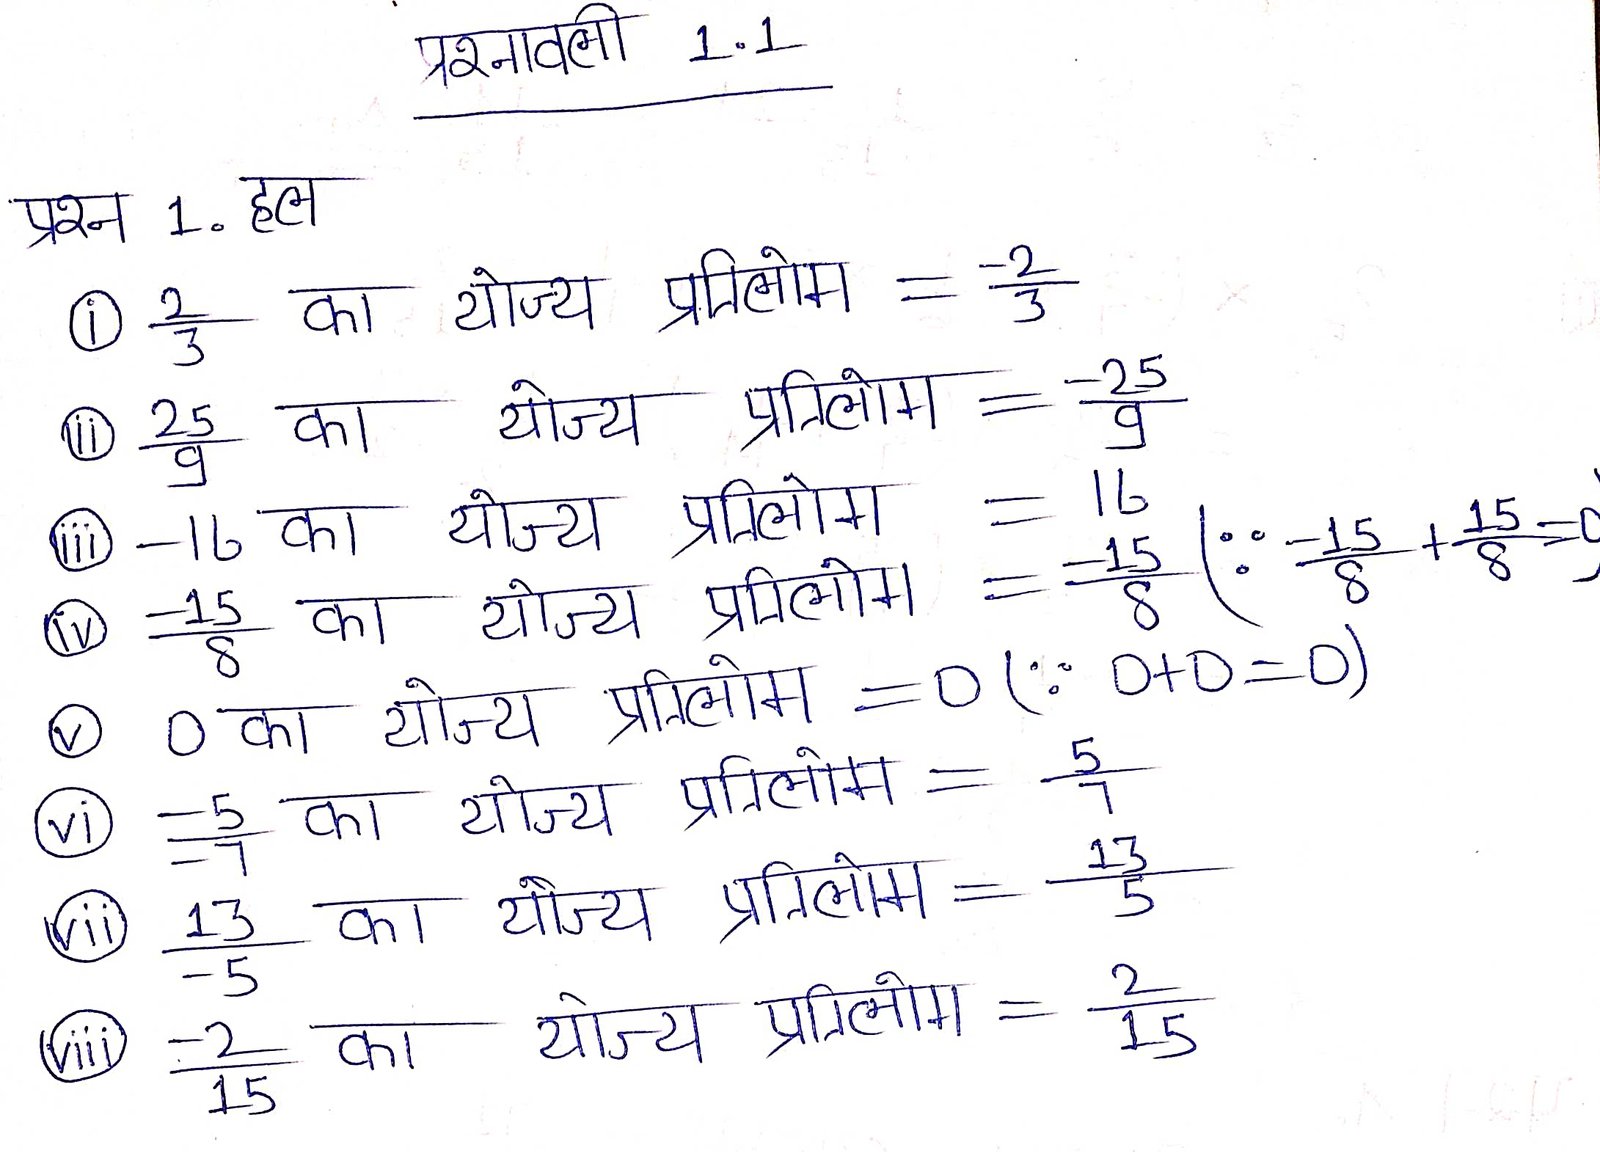 प्रश्नावली 1.1
प्रश्न 1. हल
(i) 2/3 का योज्य प्रतिलोम = -2/3
(ii) 25/9 का योज्य प्रतिलोम = -25/9
(iii) -16 का योज्य प्रतिलोम = 16
(iv) -15/8 का योज्य प्रतिलोम = -15/8 (∵ -15/8 + 15/8 = 0)
(v) 0 का योज्य प्रतिलोम = 0 (∵ 0+0=0)
(vi) -5/-7 का योज्य प्रतिलोम = 5/7
(vii) 13/-5 का योज्य प्रतिलोम = 13/5
(viii) -2/15 का योज्य प्रतिलोम = 2/15